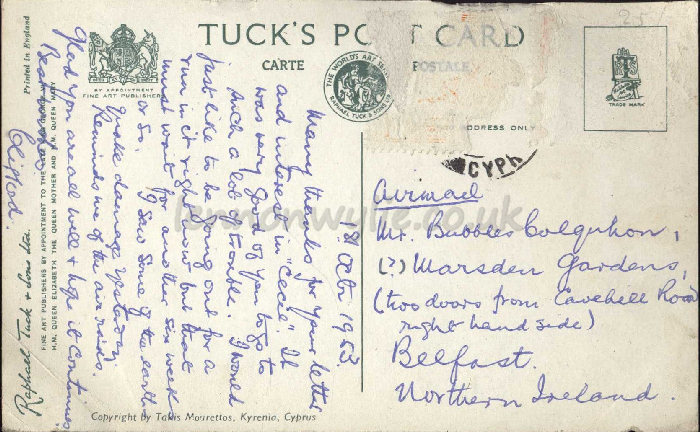 TUCK'S POST CARD
CARTE POSTALE
BY APPOINTMENT
FINE ART PUBLISHERS
THE WORLD'S ART SERVICE
RAPHAEL TUCK & SONS LTD
TRADE MARK
ADDRESS ONLY
CYPR
18 Octr 1953.
Many thanks for your letter
and interest in "Cecil". It
was very good of you to go to
such a lot of trouble. I would
just like to be going out for a
run in it right now but that
must wait for another six weeks
or so. I saw some of the earth
quake damage yesterday.
Reminds me of the air raids.
Glad you are all well & hope it continues.
Clifford.
Airmail
Mr. Bubbles Colquhon,
(?) Marsden Gardens,
(two doors from Cavehill Road
right hand side)
Belfast.
Northern Ireland.
Printed in England
Raphael Tuck & Sons Ltd.
FINE ART PUBLISHERS BY APPOINTMENT TO THE
H.M. QUEEN ELIZABETH THE QUEEN MOTHER AND H.M. QUEEN MARY
Copyright by Takis Mourettos, Kyrenia, Cyprus
lennonwylie.co.uk